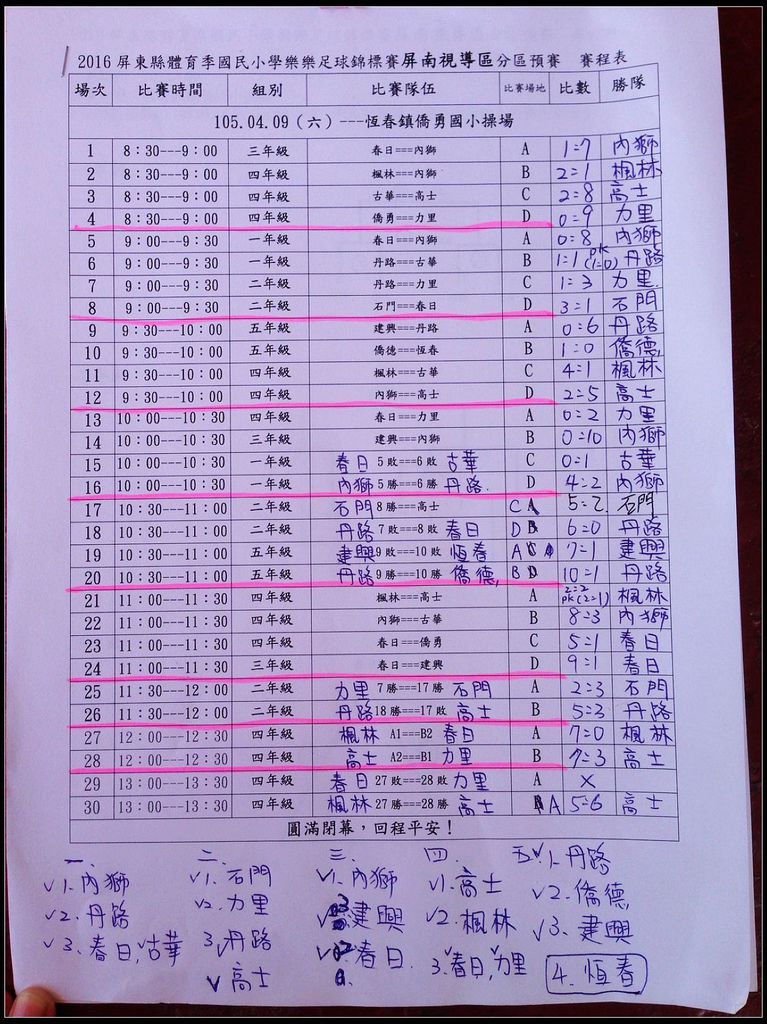 2016 屏東縣體育季國民小學樂樂足球錦標賽屏南視導區分區預賽 賽程表
場次 比賽時間 組別 比賽隊伍 比賽場地 比數 勝隊
105.04.09（六）---恆春鎮僑勇國小操場
1 8：30---9：00 三年級 春日===內獅 A 1=7 內獅
2 8：30---9：00 四年級 楓林===內獅 B 2=1 楓林
3 8：30---9：00 四年級 古華===高士 C 2=8 高士
4 8：30---9：00 四年級 僑勇===力里 D 0=9 力里
5 9：00---9：30 一年級 春日===內獅 A 0=8 內獅
6 9：00---9：30 一年級 丹路===古華 B 1=1 pk(1=0) 丹路
7 9：00---9：30 二年級 丹路===力里 C 1=3 力里
8 9：00---9：30 二年級 石門===春日 D 3=1 石門
9 9：30---10：00 五年級 建興===丹路 A 0=6 丹路
10 9：30---10：00 五年級 僑德===恆春 B 1=0 僑德
11 9：30---10：00 四年級 楓林===古華 C 4=1 楓林
12 9：30---10：00 四年級 內獅===高士 D 2=5 高士
13 10：00---10：30 四年級 春日===力里 A 0=2 力里
14 10：00---10：30 三年級 建興===內獅 B 0=10 內獅
15 10：00---10：30 一年級 春日 5 敗===6 敗 古華 C 0=1 古華
16 10：00---10：30 一年級 內獅 5 勝===6 勝 丹路 D 4=2 內獅
17 10：30---11：00 二年級 石門 8 勝===高士 C 5=2 石門
18 10：30---11：00 二年級 丹路 7 敗===8 敗 春日 D 6=0 丹路
19 10：30---11：00 五年級 建興 9 敗===10 敗 恆春 A 7=1 建興
20 10：30---11：00 五年級 丹路 9 勝===10 勝 僑德 B 10=1 丹路
21 11：00---11：30 四年級 楓林===高士 A 2=2 pk(2=1) 楓林
22 11：00---11：30 四年級 內獅===古華 B 8=3 內獅
23 11：00---11：30 四年級 春日===僑勇 C 5=1 春日
24 11：00---11：30 三年級 春日===建興 D 9=1 春日
25 11：30---12：00 二年級 力里 7 勝===17 勝 石門 A 2=3 石門
26 11：30---12：00 二年級 丹路 18 勝===17 敗 高士 B 5=3 丹路
27 12：00---12：30 四年級 楓林 A1===B2 春日 A 7=0 楓林
28 12：00---12：30 四年級 高士 A2===B1 力里 B 7=3 高士
29 13：00---13：30 四年級 春日 27 敗===28 敗 力里 A ×
30 13：00---13：30 四年級 楓林 27 勝===28 勝 高士 A 5=6 高士
圓滿閉幕，回程平安！
一、 二、 三、 四、 五、
✓1、內獅 ✓1、石門 ✓1、內獅 ✓1、高士 ✓1、丹路
✓2、丹路 ✓2、力里 建興 ✓2、楓林 ✓2、僑德
✓3、春日、古華 3、丹路 春日 3、春日、力里 ✓3、建興
✓高士 4、恆春